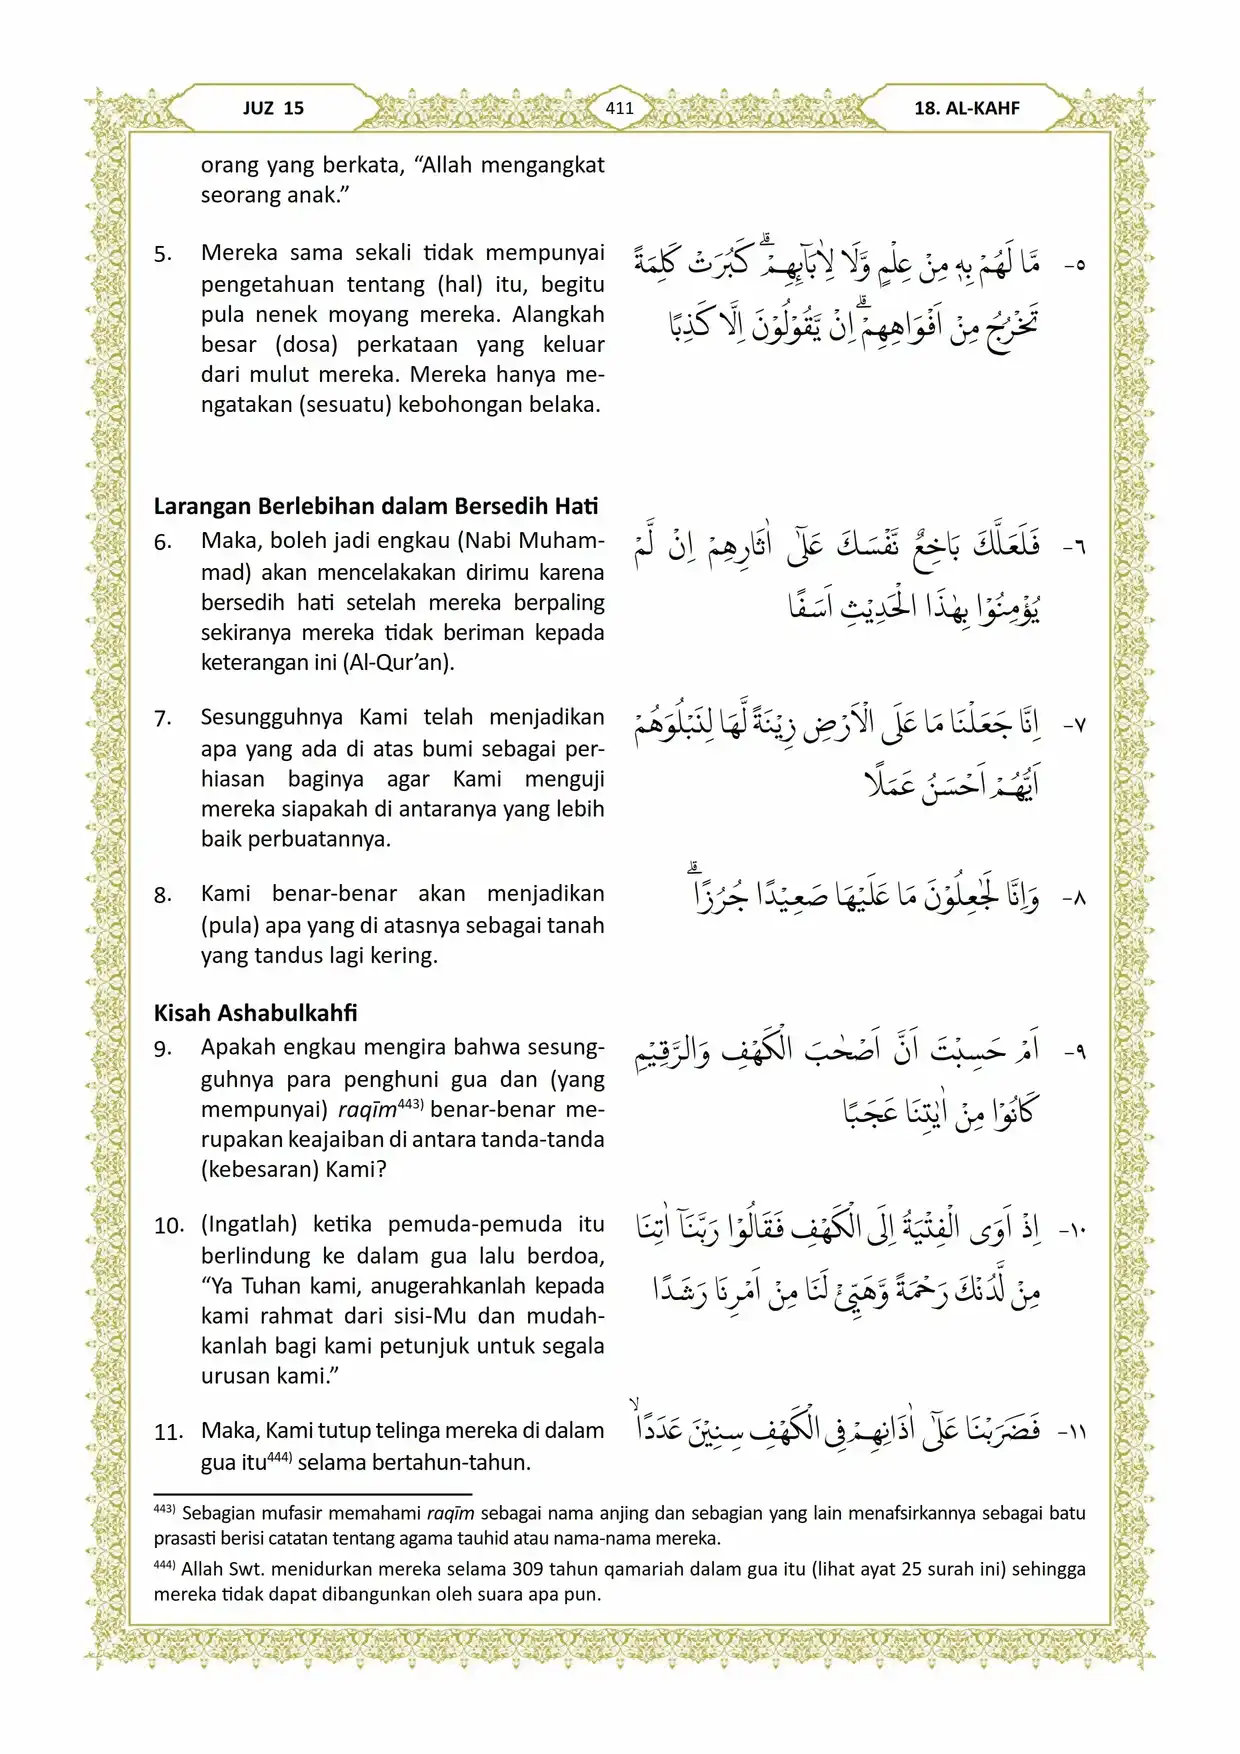 JUZ 15
411
18. AL-KAHF
orang yang berkata, “Allah mengangkat
seorang anak.”
5. Mereka sama sekali tidak mempunyai
pengetahuan tentang (hal) itu, begitu
pula nenek moyang mereka. Alangkah
besar (dosa) perkataan yang keluar
dari mulut mereka. Mereka hanya me-
ngatakan (sesuatu) kebohongan belaka.
٥- مَّا لَهُمْ بِهٖ مِنْ عِلْمٍ وَّلَا لِاٰبَاۤىِٕهِمْۗ كَبُرَتْ كَلِمَةً
تَخْرُجُ مِنْ اَفْوَاهِهِمْۗ اِنْ يَّقُوْلُوْنَ اِلَّا كَذِبًا
Larangan Berlebihan dalam Bersedih Hati
6. Maka, boleh jadi engkau (Nabi Muham-
mad) akan mencelakakan dirimu karena
bersedih hati setelah mereka berpaling
sekiranya mereka tidak beriman kepada
keterangan ini (Al-Qur’an).
٦- فَلَعَلَّكَ بَاخِعٌ نَّفْسَكَ عَلٰٓى اٰثَارِهِمْ اِنْ لَّمْ
يُؤْمِنُوْا بِهٰذَا الْحَدِيْثِ اَسَفًا
7. Sesungguhnya Kami telah menjadikan
apa yang ada di atas bumi sebagai per-
hiasan baginya agar Kami menguji
mereka siapakah di antaranya yang lebih
baik perbuatannya.
٧- اِنَّا جَعَلْنَا مَا عَلَى الْاَرْضِ زِيْنَةً لَّهَا لِنَبْلُوَهُمْ
اَيُّهُمْ اَحْسَنُ عَمَلًا
8. Kami benar-benar akan menjadikan
(pula) apa yang di atasnya sebagai tanah
yang tandus lagi kering.
٨- وَاِنَّا لَجٰعِلُوْنَ مَا عَلَيْهَا صَعِيْدًا جُرُزًاۗ
Kisah Ashabulkahfi
9. Apakah engkau mengira bahwa sesung-
guhnya para penghuni gua dan (yang
mempunyai) raqīm443) benar-benar me-
rupakan keajaiban di antara tanda-tanda
(kebesaran) Kami?
٩- اَمْ حَسِبْتَ اَنَّ اَصْحٰبَ الْكَهْفِ وَالرَّقِيْمِ
كَانُوْا مِنْ اٰيٰتِنَا عَجَبًا
10. (Ingatlah) ketika pemuda-pemuda itu
berlindung ke dalam gua lalu berdoa,
“Ya Tuhan kami, anugerahkanlah kepada
kami rahmat dari sisi-Mu dan mudah-
kanlah bagi kami petunjuk untuk segala
urusan kami.”
١٠- اِذْ اَوَى الْفِتْيَةُ اِلَى الْكَهْفِ فَقَالُوْا رَبَّنَآ اٰتِنَا
مِنْ لَّدُنْكَ رَحْمَةً وَّهَيِّئْ لَنَا مِنْ اَمْرِنَا رَشَدًا
11. Maka, Kami tutup telinga mereka di dalam
gua itu444) selama bertahun-tahun.
١١- فَضَرَبْنَا عَلٰٓى اٰذَانِهِمْ فِى الْكَهْفِ سِنِيْنَ عَدَدًاۙ
443) Sebagian mufasir memahami raqīm sebagai nama anjing dan sebagian yang lain menafsirkannya sebagai batu
prasasti berisi catatan tentang agama tauhid atau nama-nama mereka.
444) Allah Swt. menidurkan mereka selama 309 tahun qamariah dalam gua itu (lihat ayat 25 surah ini) sehingga
mereka tidak dapat dibangunkan oleh suara apa pun.